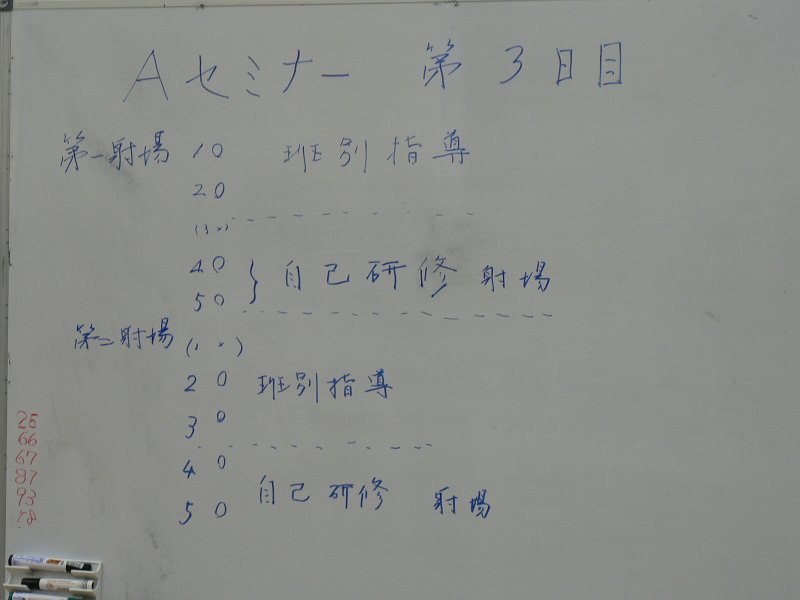 Aセミナー 第3日目
第一射場 10 班別指導
20
(3×)
40
50 } 自己研修 射場
第二射場 (1 ×)
20 班別指導
30
40
50 自己研修 射場
25
66
67
87
93